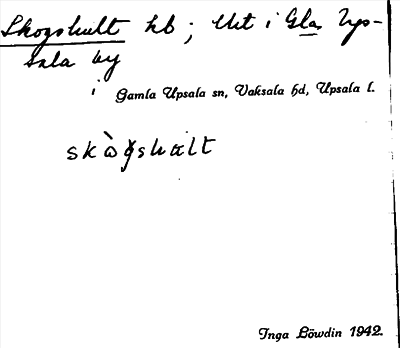 Skogshult hb; Utt i Gla Up-
sala by
i Gamla Upsala sn, Vaksala hd, Upsala l.
skògshult
Inga Löwdin 1942.